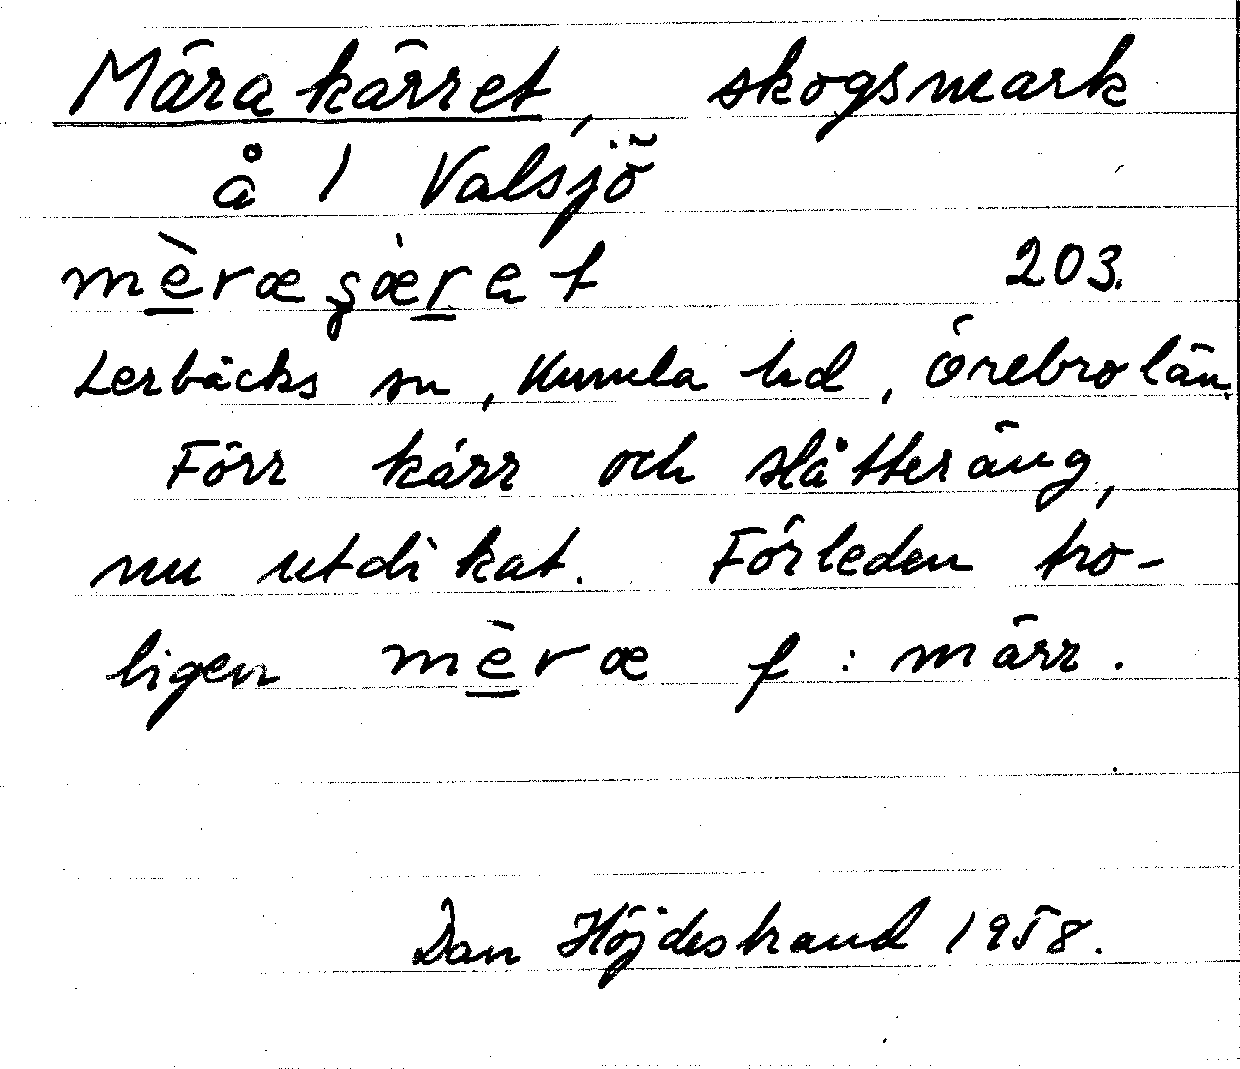 Märakärret, skogsmark
å 1 Valsjö
mèræ çæ̀ret 203.
Lerbäcks sn, Kumla hd, Örebro län.
Förr kärr och slåtteräng,
nu utdikat. Förleden tro-
ligen mèræ f : märr.
Dan Höjdestrand 1958.